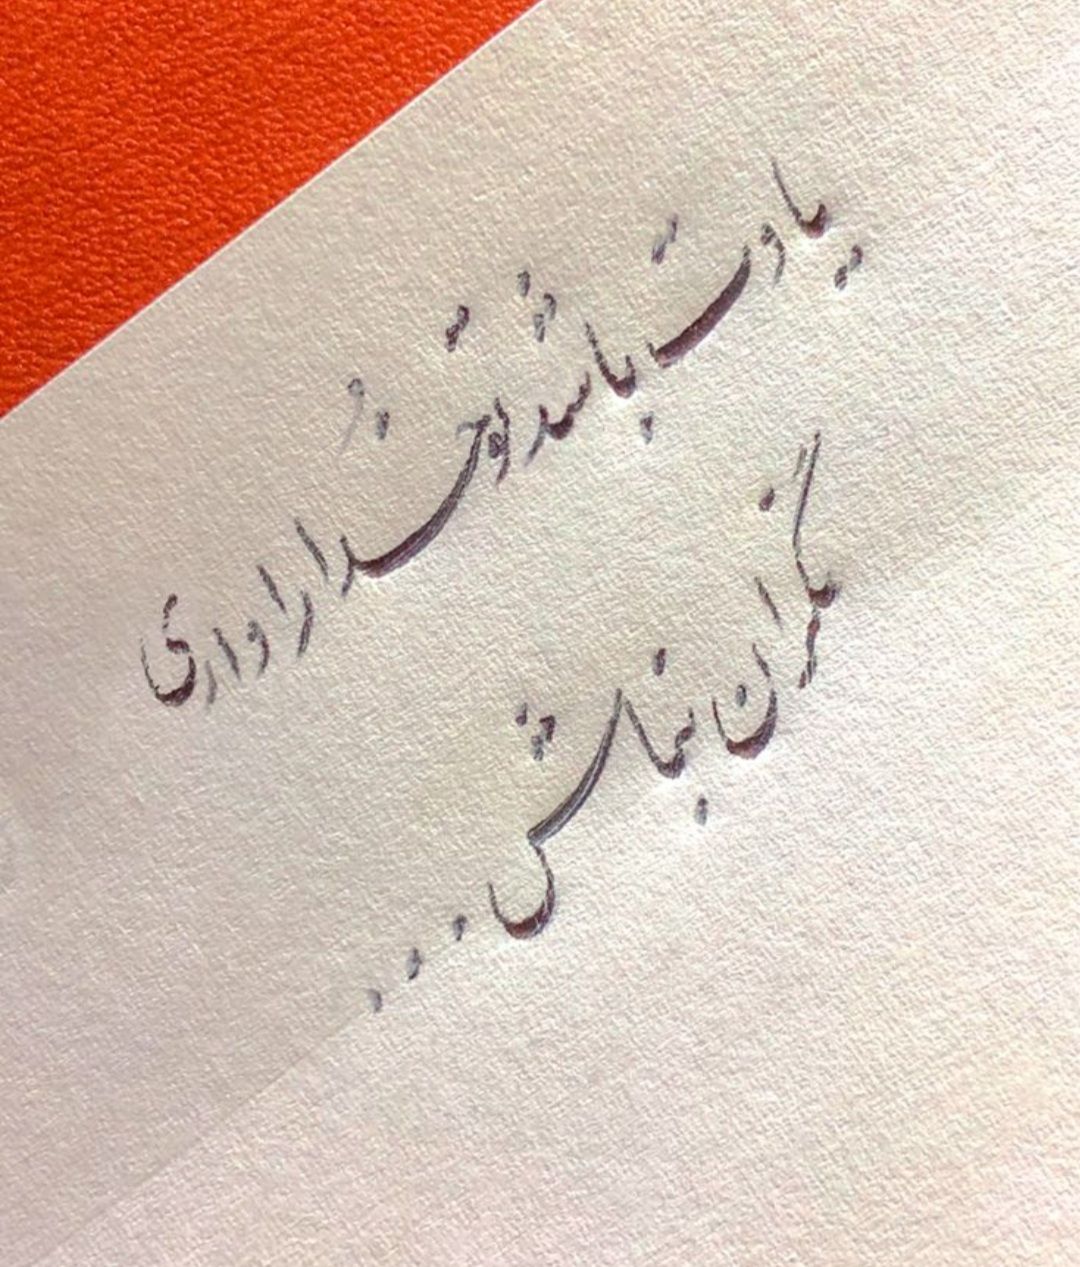 یادت باشد تو خدا را داری
نگران نباش...